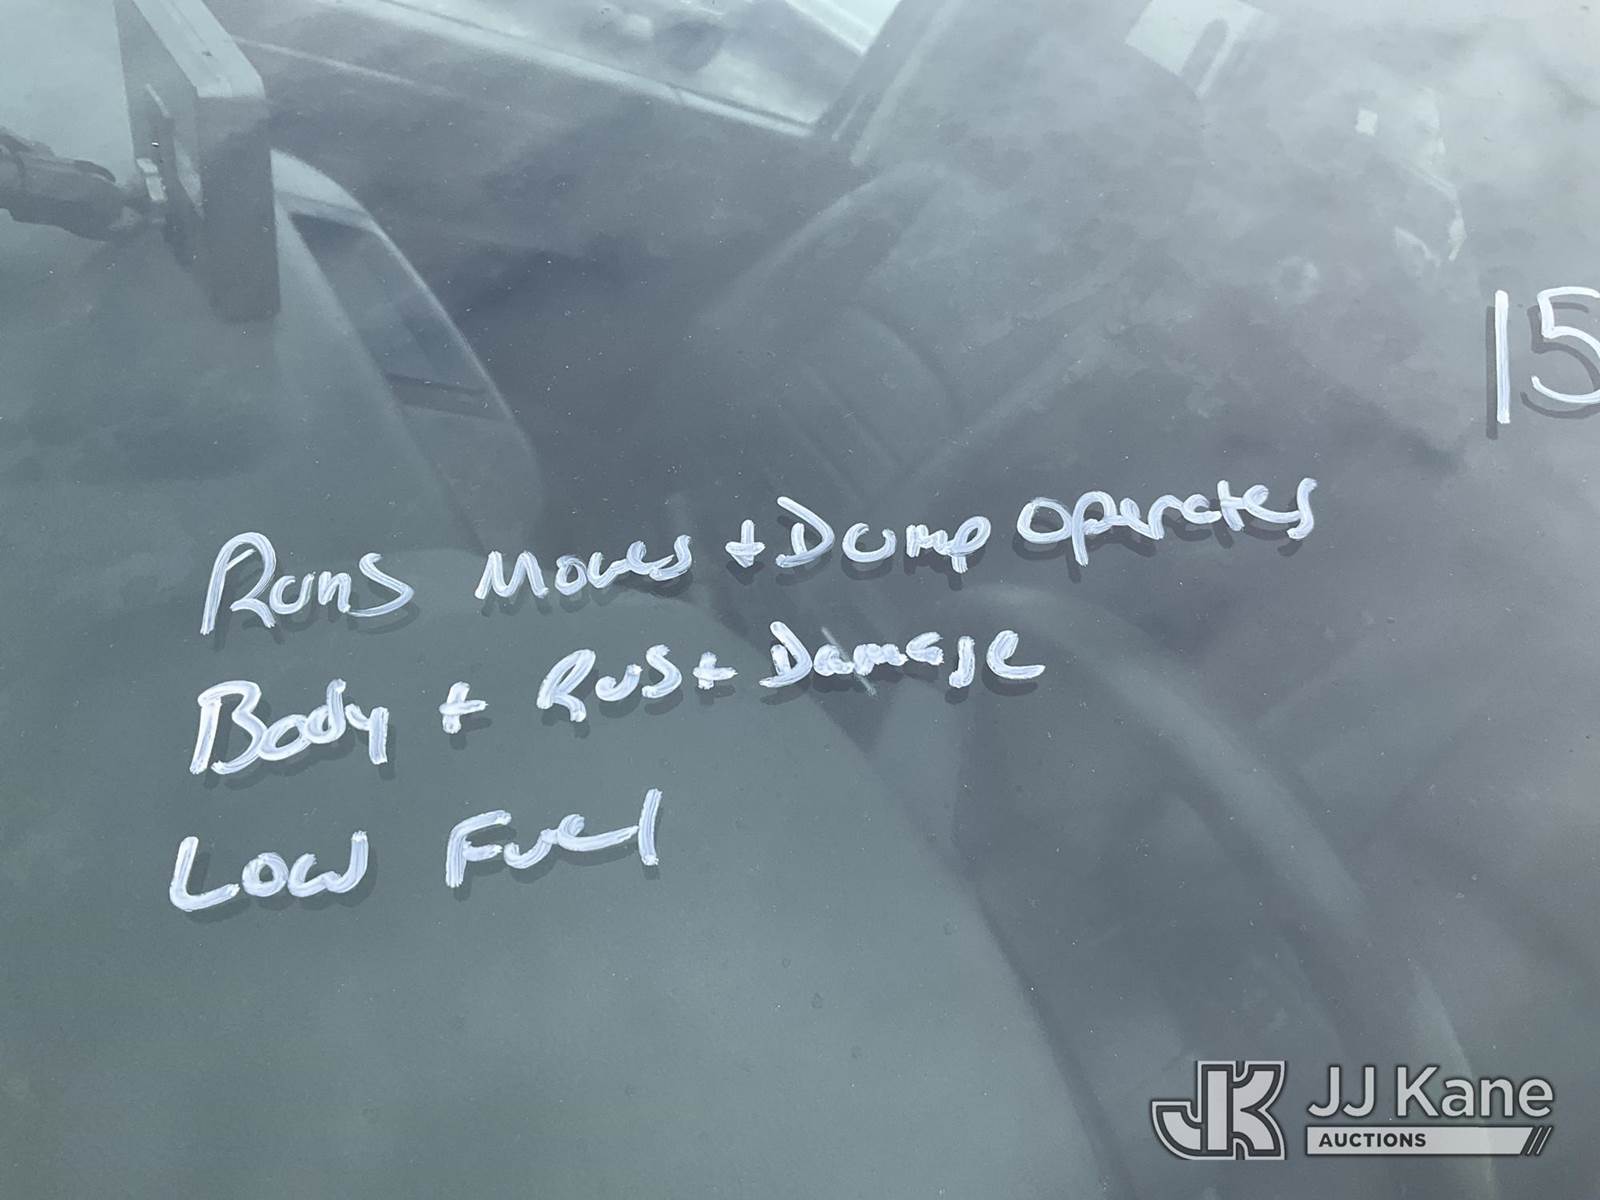 15
Runs Moves + Dump operates
Body + Rust Damage
Low Fuel
JK JJ Kane
AUCTIONS